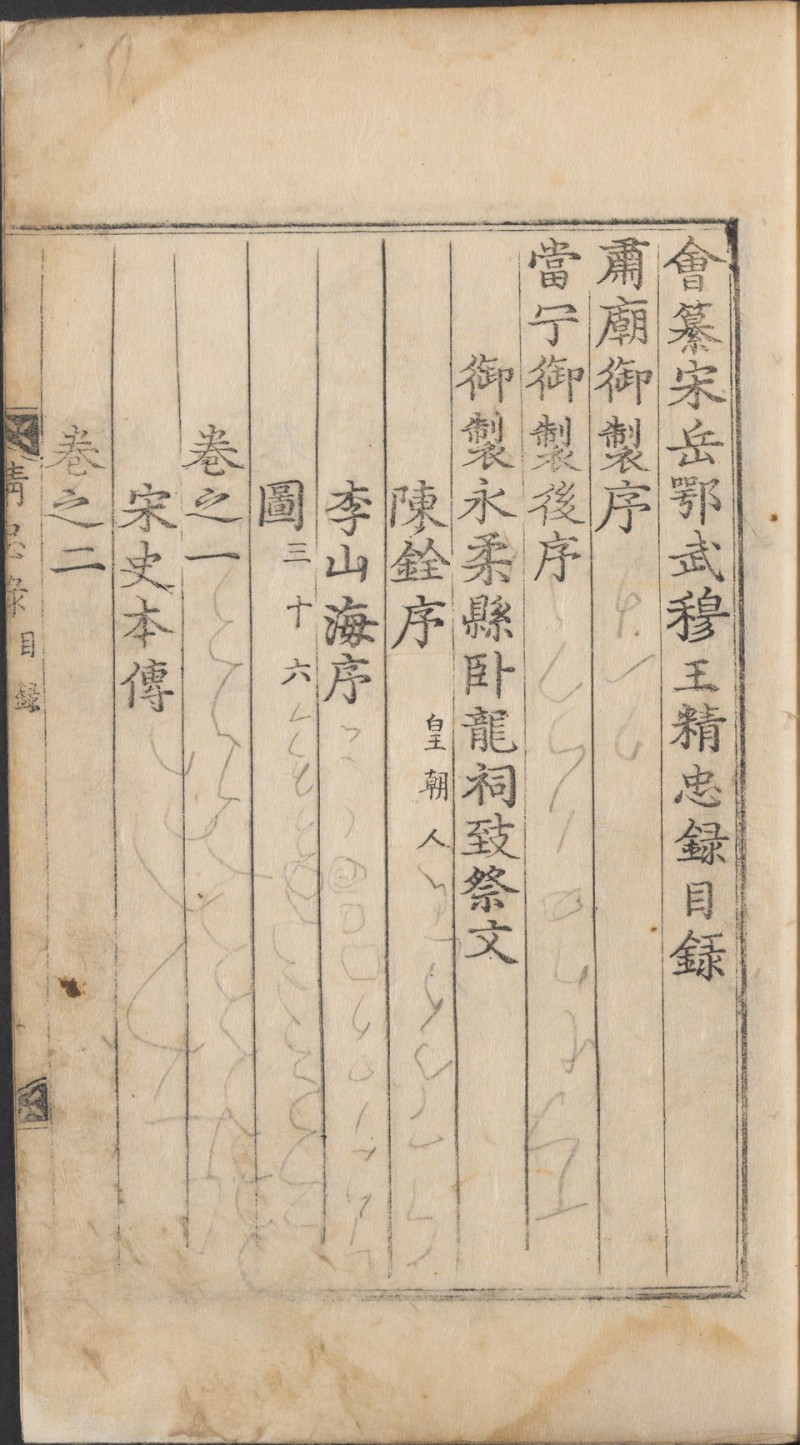 會纂宋岳鄂武穆王精忠録目録
肅廟御製序
當宁御製後序
御製永柔縣卧龍祠致祭文
陳銓序 皇朝人
李山海序
圖三十六
卷之一
宋史本傳
卷之二
精忠錄 目録